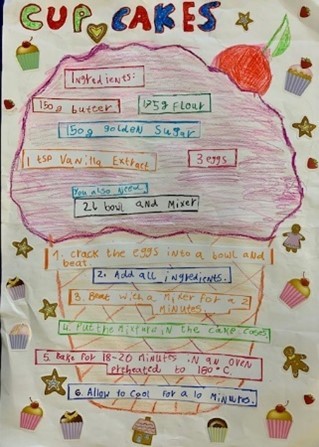 CUP CAKES
Ingredients:
150g butter
125g Flour
150g golden Sugar
1 tsp Vanilla Extract
3 eggs
You also need
2L bowl and Mixer
1. crack the eggs into a bowl and
beat.
2. Add all ingredients.
3. Beat with a Mixer for a 2
Minutes.
4. Put the Mixture in the cake cases
5. Bake for 18-20 Minutes in an oven
preheated to 180°C.
6. Allow to Cool for a 10 Minute.